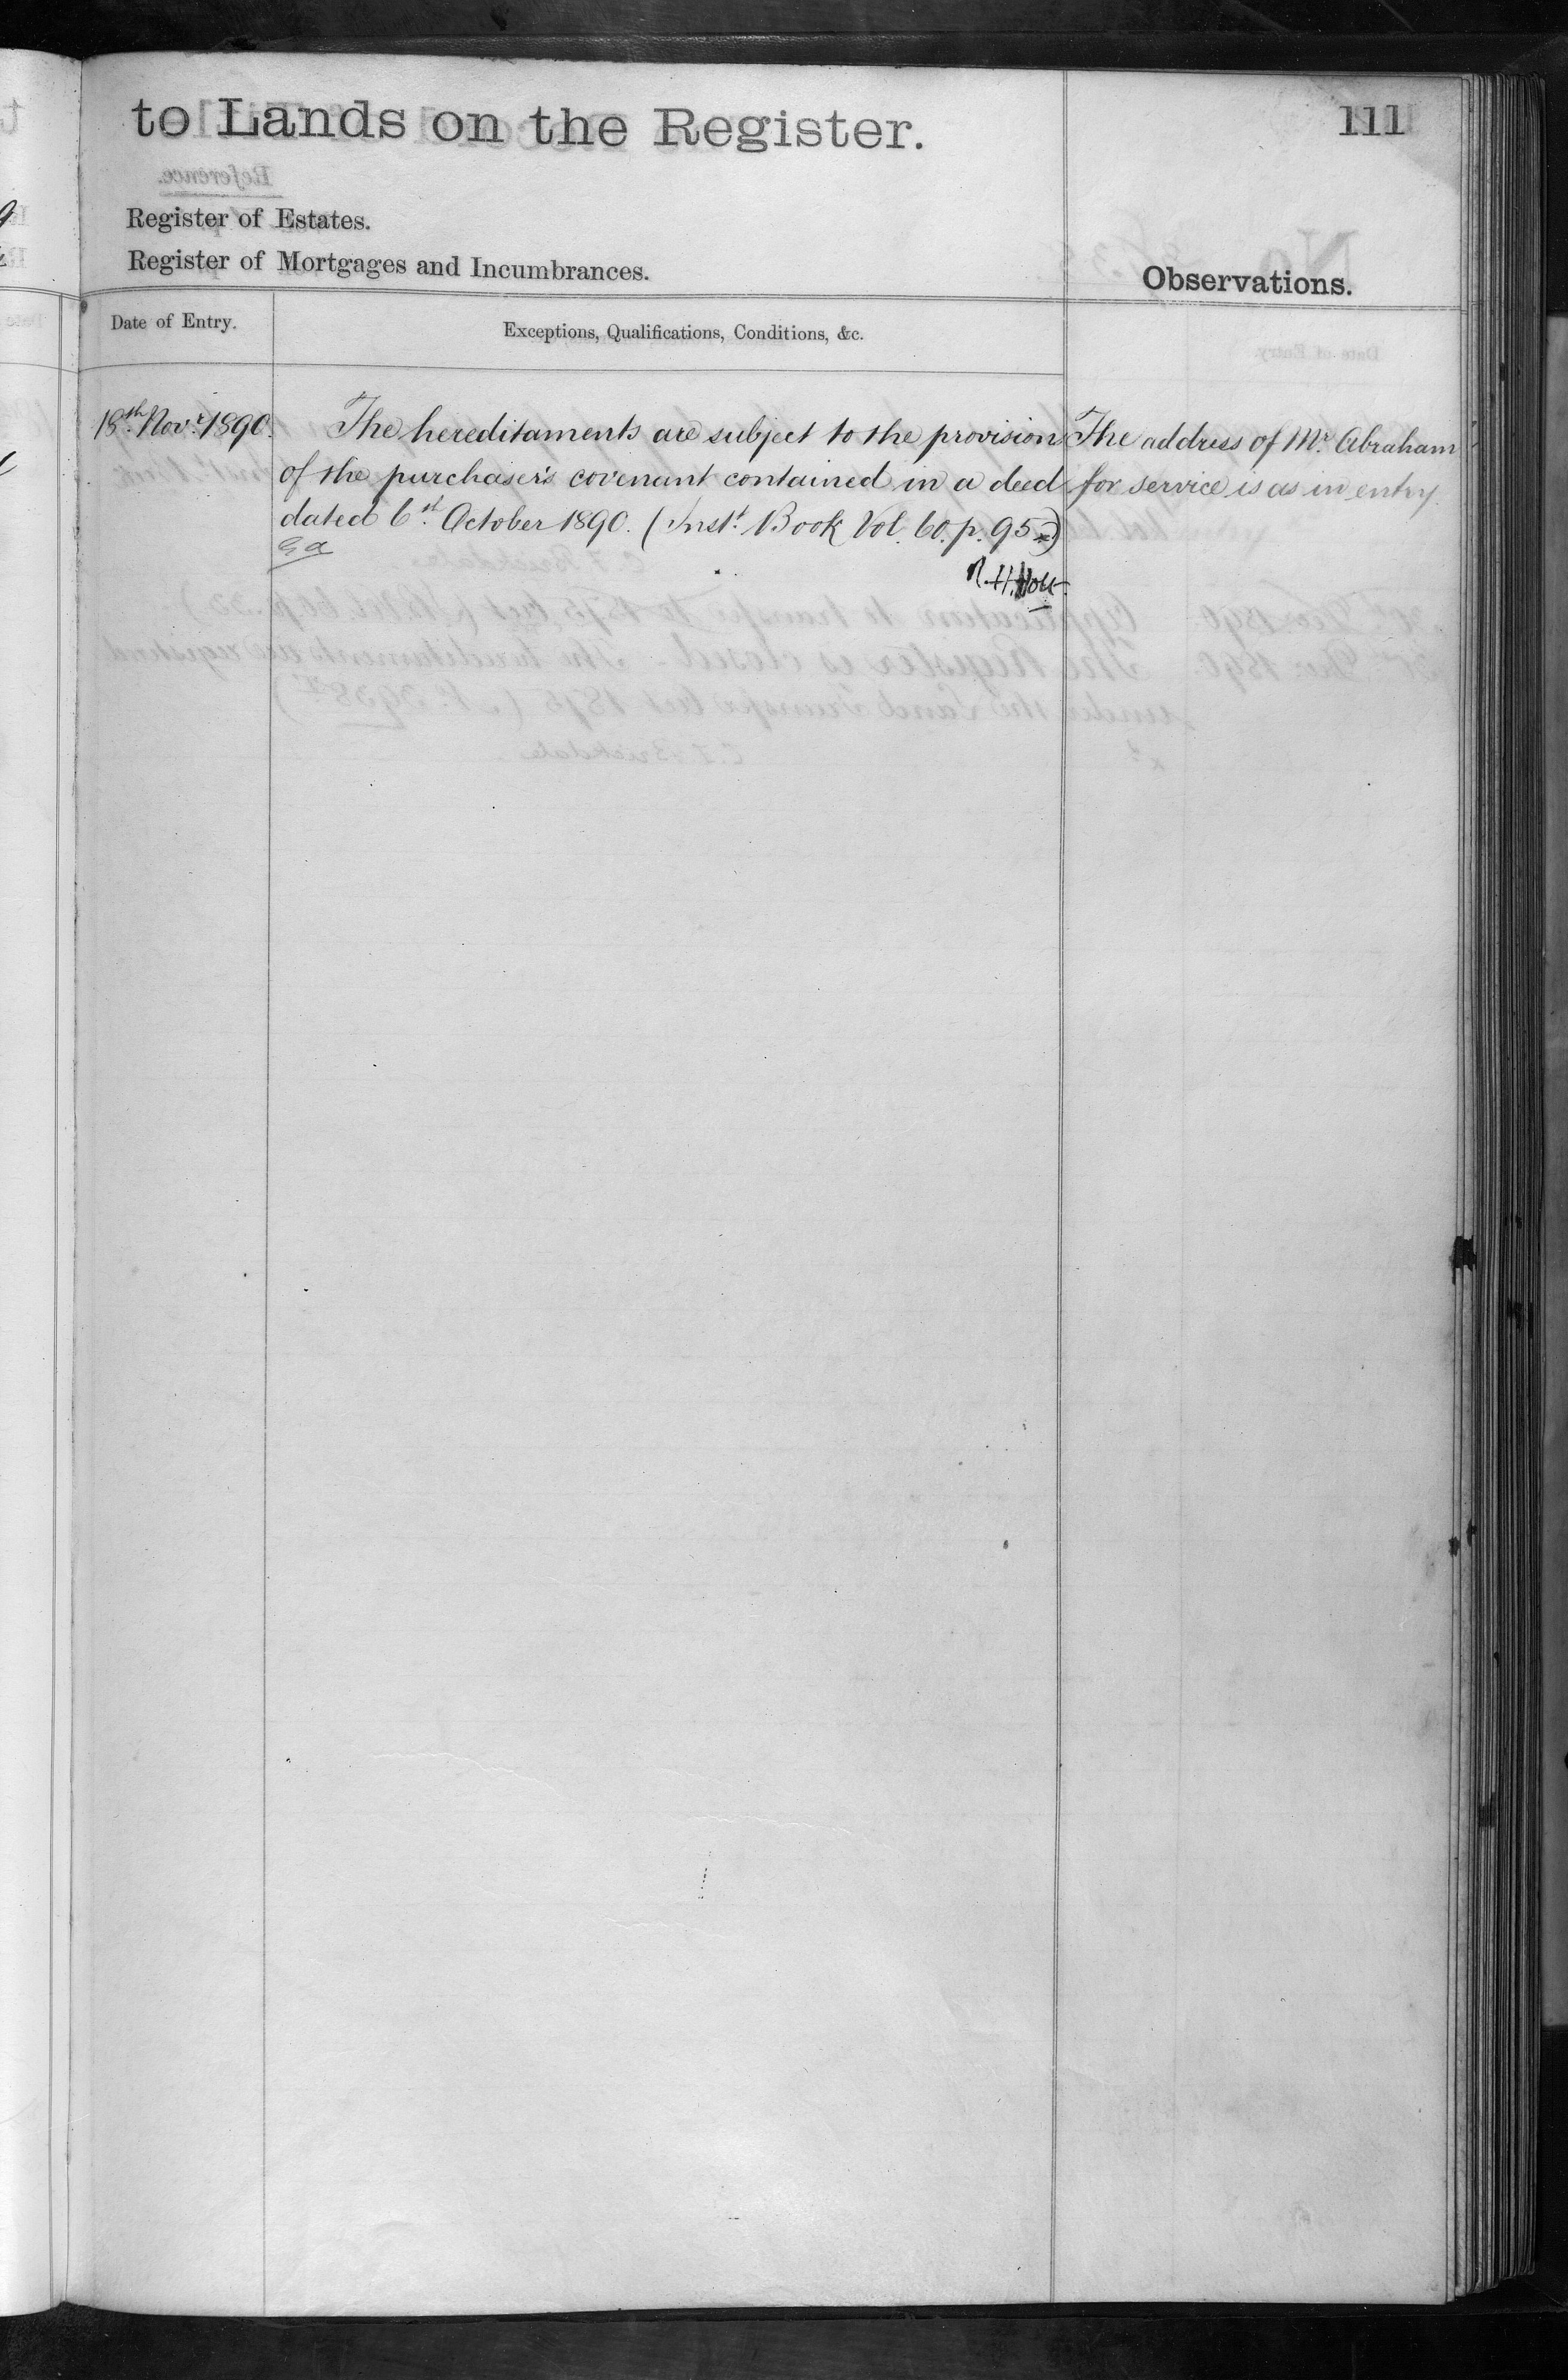 to Lands on the Register.
111
Register of Estates.
Register of Mortgages and Incumbrances.
Observations.
Date of Entry.
Exceptions, Qualifications, Conditions, &c.
18th Novr 1890.
The hereditaments are subject to the provision
of the purchaser's covenant contained in a deed
dated 6st October 1890. (Inst. Book Vol. 60. p. 95
R. H. Holt
The address of Mr. Abraham
for service is as in entry.